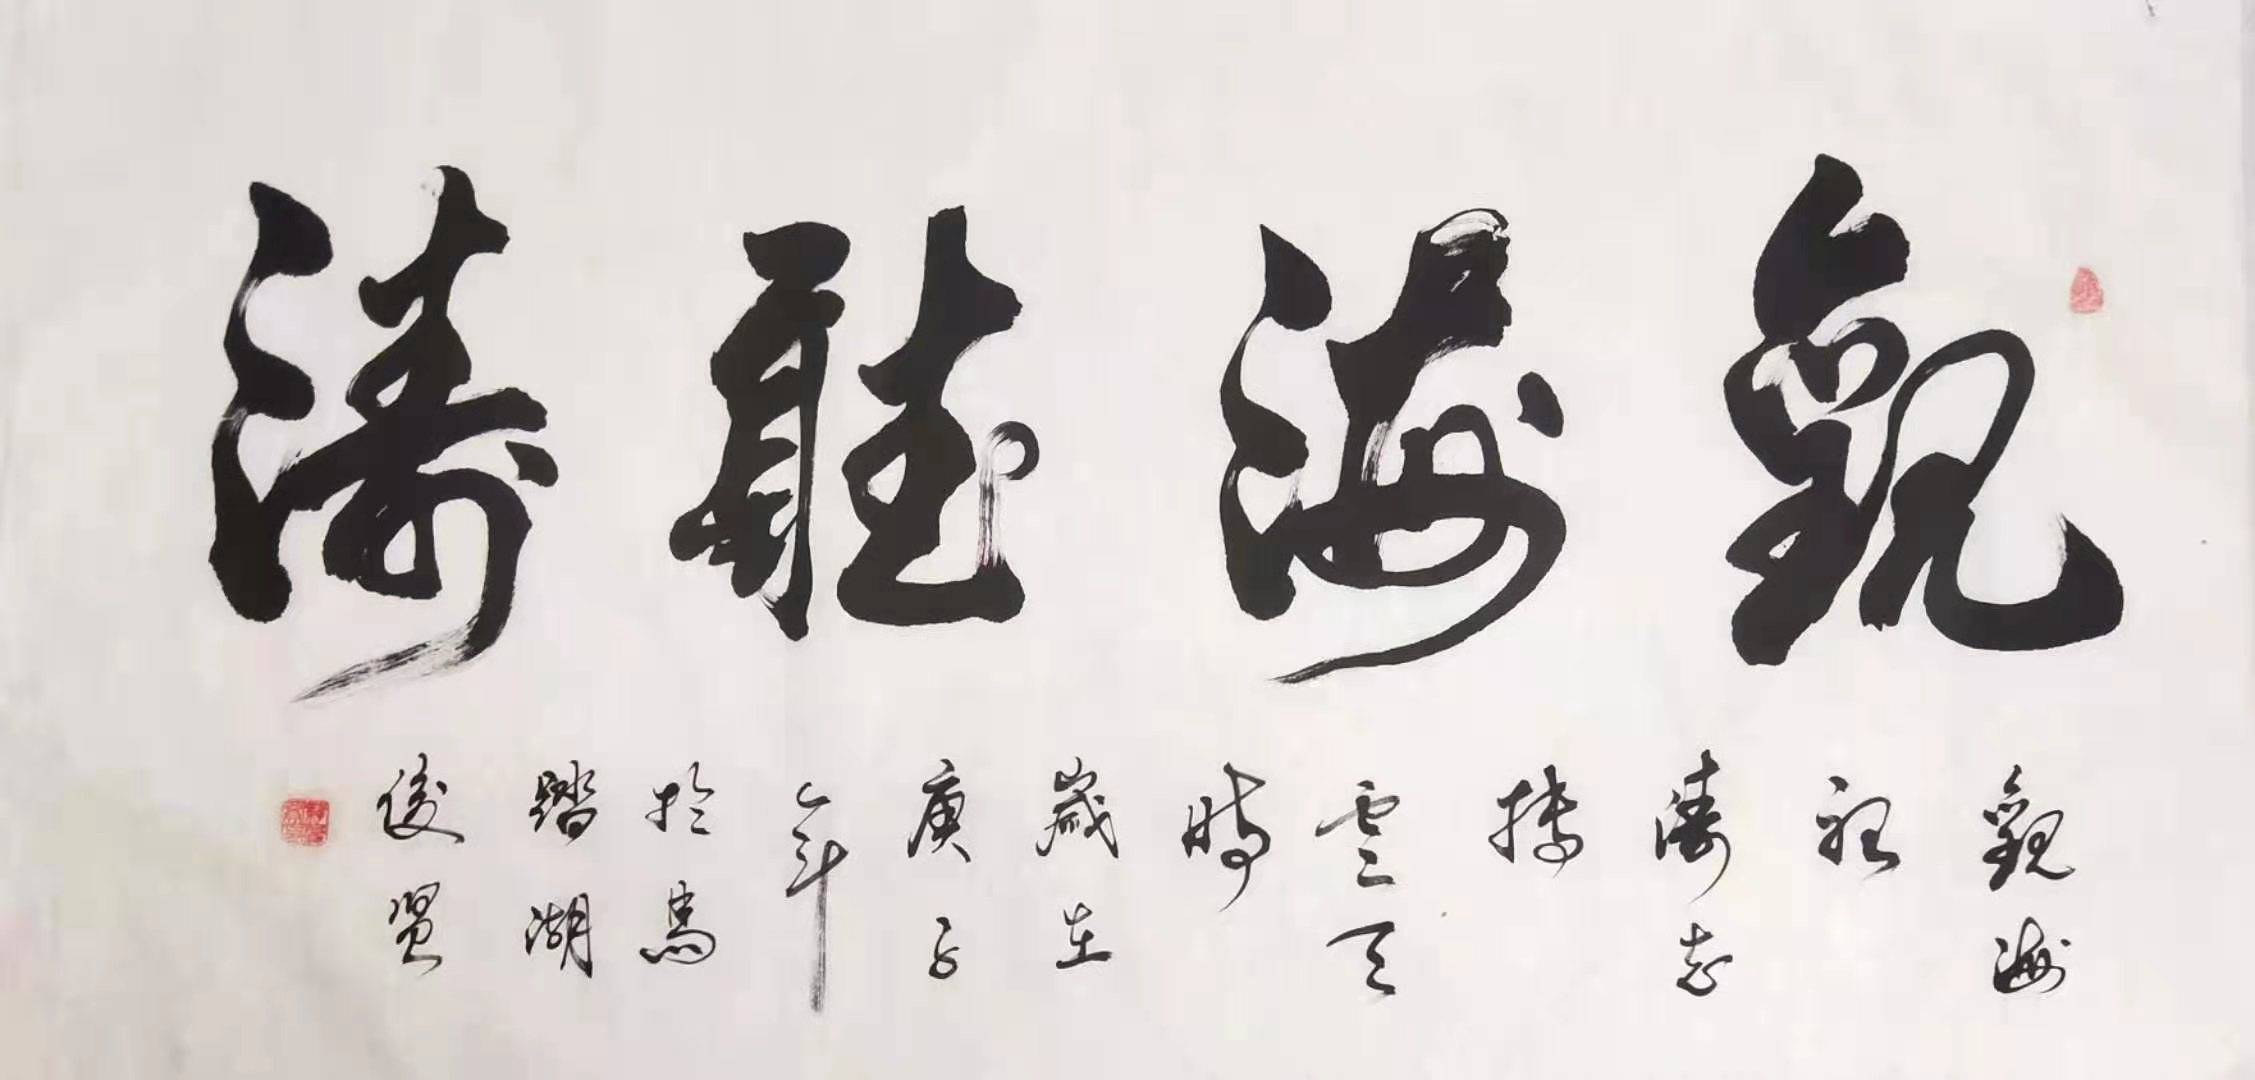 觀海聽濤
觀海
聽
濤志
摶
雲天
時
歲在
庚子
年
於馬
踏湖
俊賢